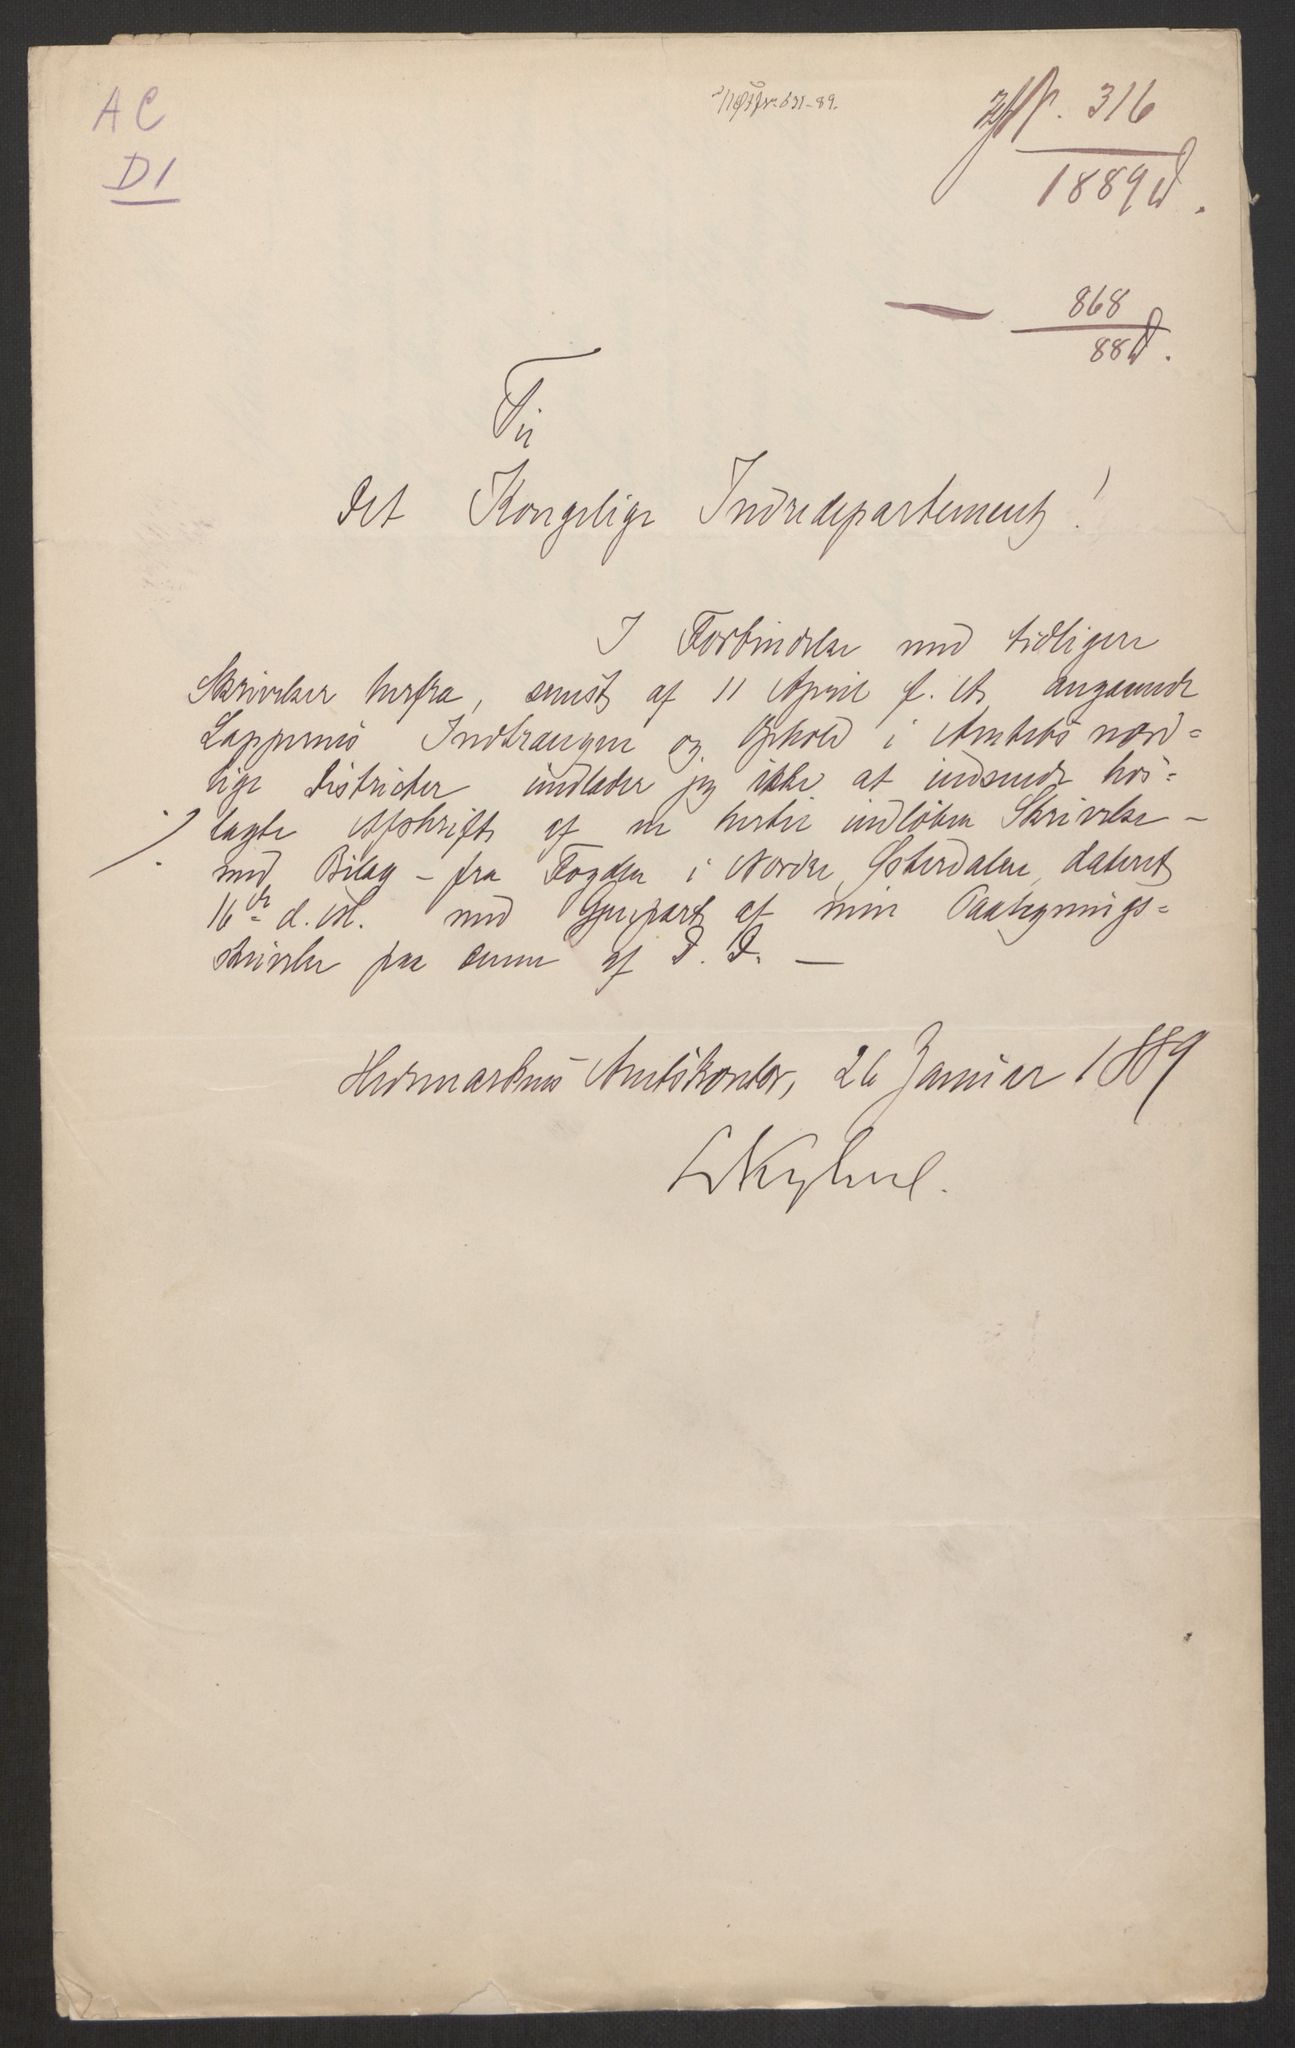 AC
D1
631-89.
316
1889 D.
868
88 D.
Til
Det Kongelige Indredepartement!
I Forbindelse med tidligere
Skrivelser herfra, senest af 11 April f. A. angaaende
Lappernes Indtrængen og Ophold i Amtets nord=
lige Districter undlader jeg ikke at indsende hos=
lagte Afskrift af en hertil indløben Skrivelse –
med Bilag – fra Fogden i Nordre Østerdalen, dateret
16de d. M. med Gjenpart af min Paategnings=
skrivelse paa denne af D. D. —
Hedemarkens Amtskontor, 26 Januar 1889